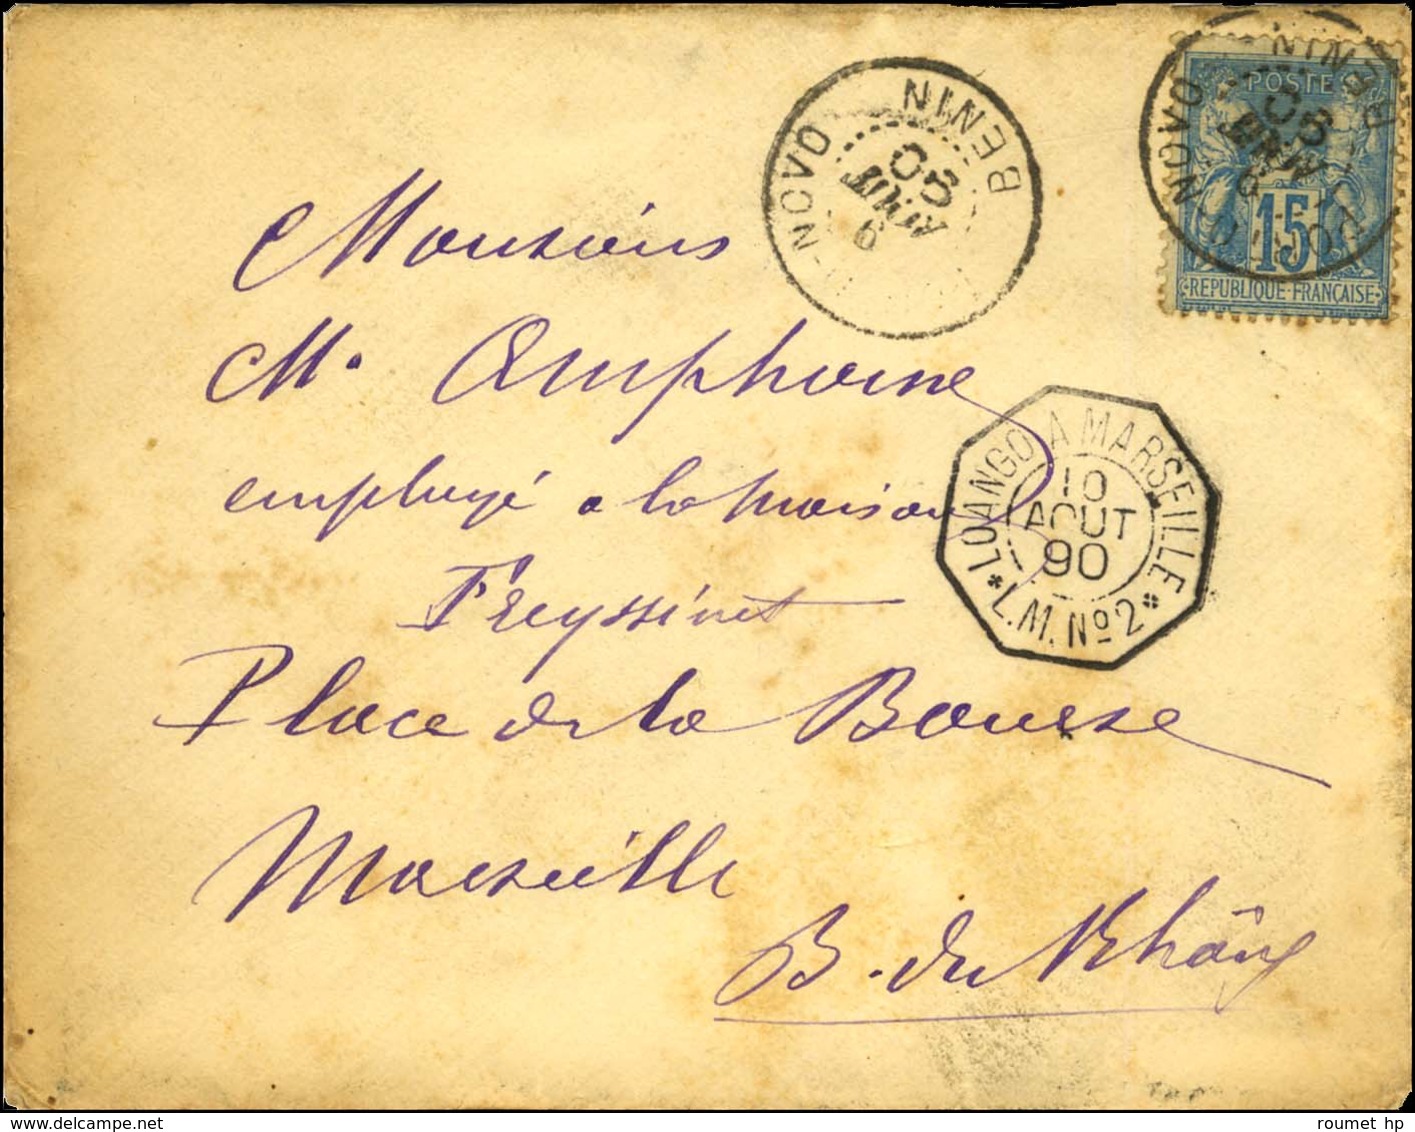 BENIN
PORTO-NOVO
9
AOUT
90
BENIN
NOVO
9
AOUT
POSTE
15
REPUBLIQUE FRANCAISE
Monsieur
M. Amphoine
employé a la maison
Freyssinet
Place de la Bourse
Marseille
B. du Rhône
LOANGO A MARSEILLE
10
AOUT
90
* L.M. Nº 2 *
roumet hp